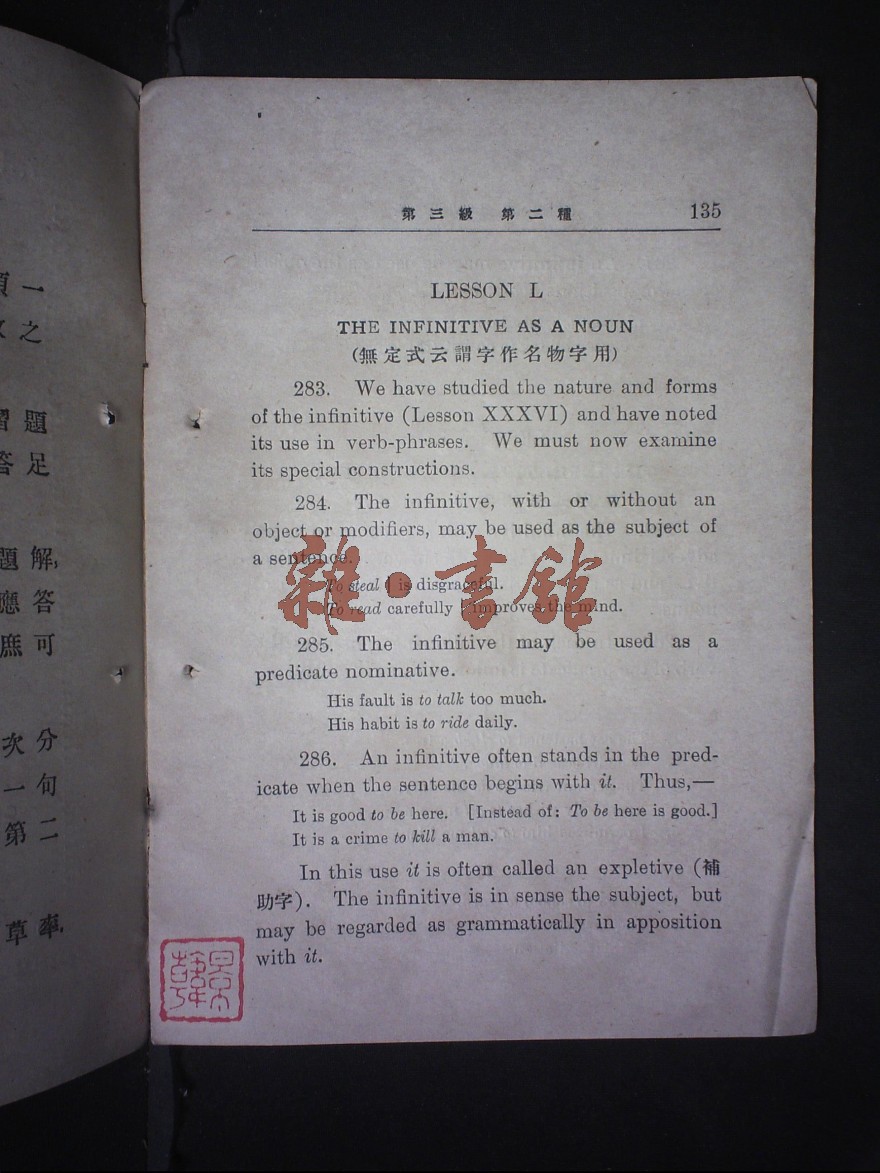 第三級 第二種 135
LESSON L
THE INFINITIVE AS A NOUN
(無定式云謂字作名物字用)
283. We have studied the nature and forms
of the infinitive (Lesson XXXVI) and have noted
its use in verb-phrases. We must now examine
its special constructions.
284. The infinitive, with or without an
object or modifiers, may be used as the subject of
a sentence.
To steal | is disgraceful.
To read carefully | improves the mind.
雜·書館
285. The infinitive may be used as a
predicate nominative.
His fault is to talk too much.
His habit is to ride daily.
286. An infinitive often stands in the pred-
icate when the sentence begins with it. Thus,—
It is good to be here. [Instead of: To be here is good.]
It is a crime to kill a man.
In this use it is often called an expletive (補
助字). The infinitive is in sense the subject, but
may be regarded as grammatically in apposition
with it.
一
之
題
答足
題解,
應答
庶可
次分
一句
第二
草率,